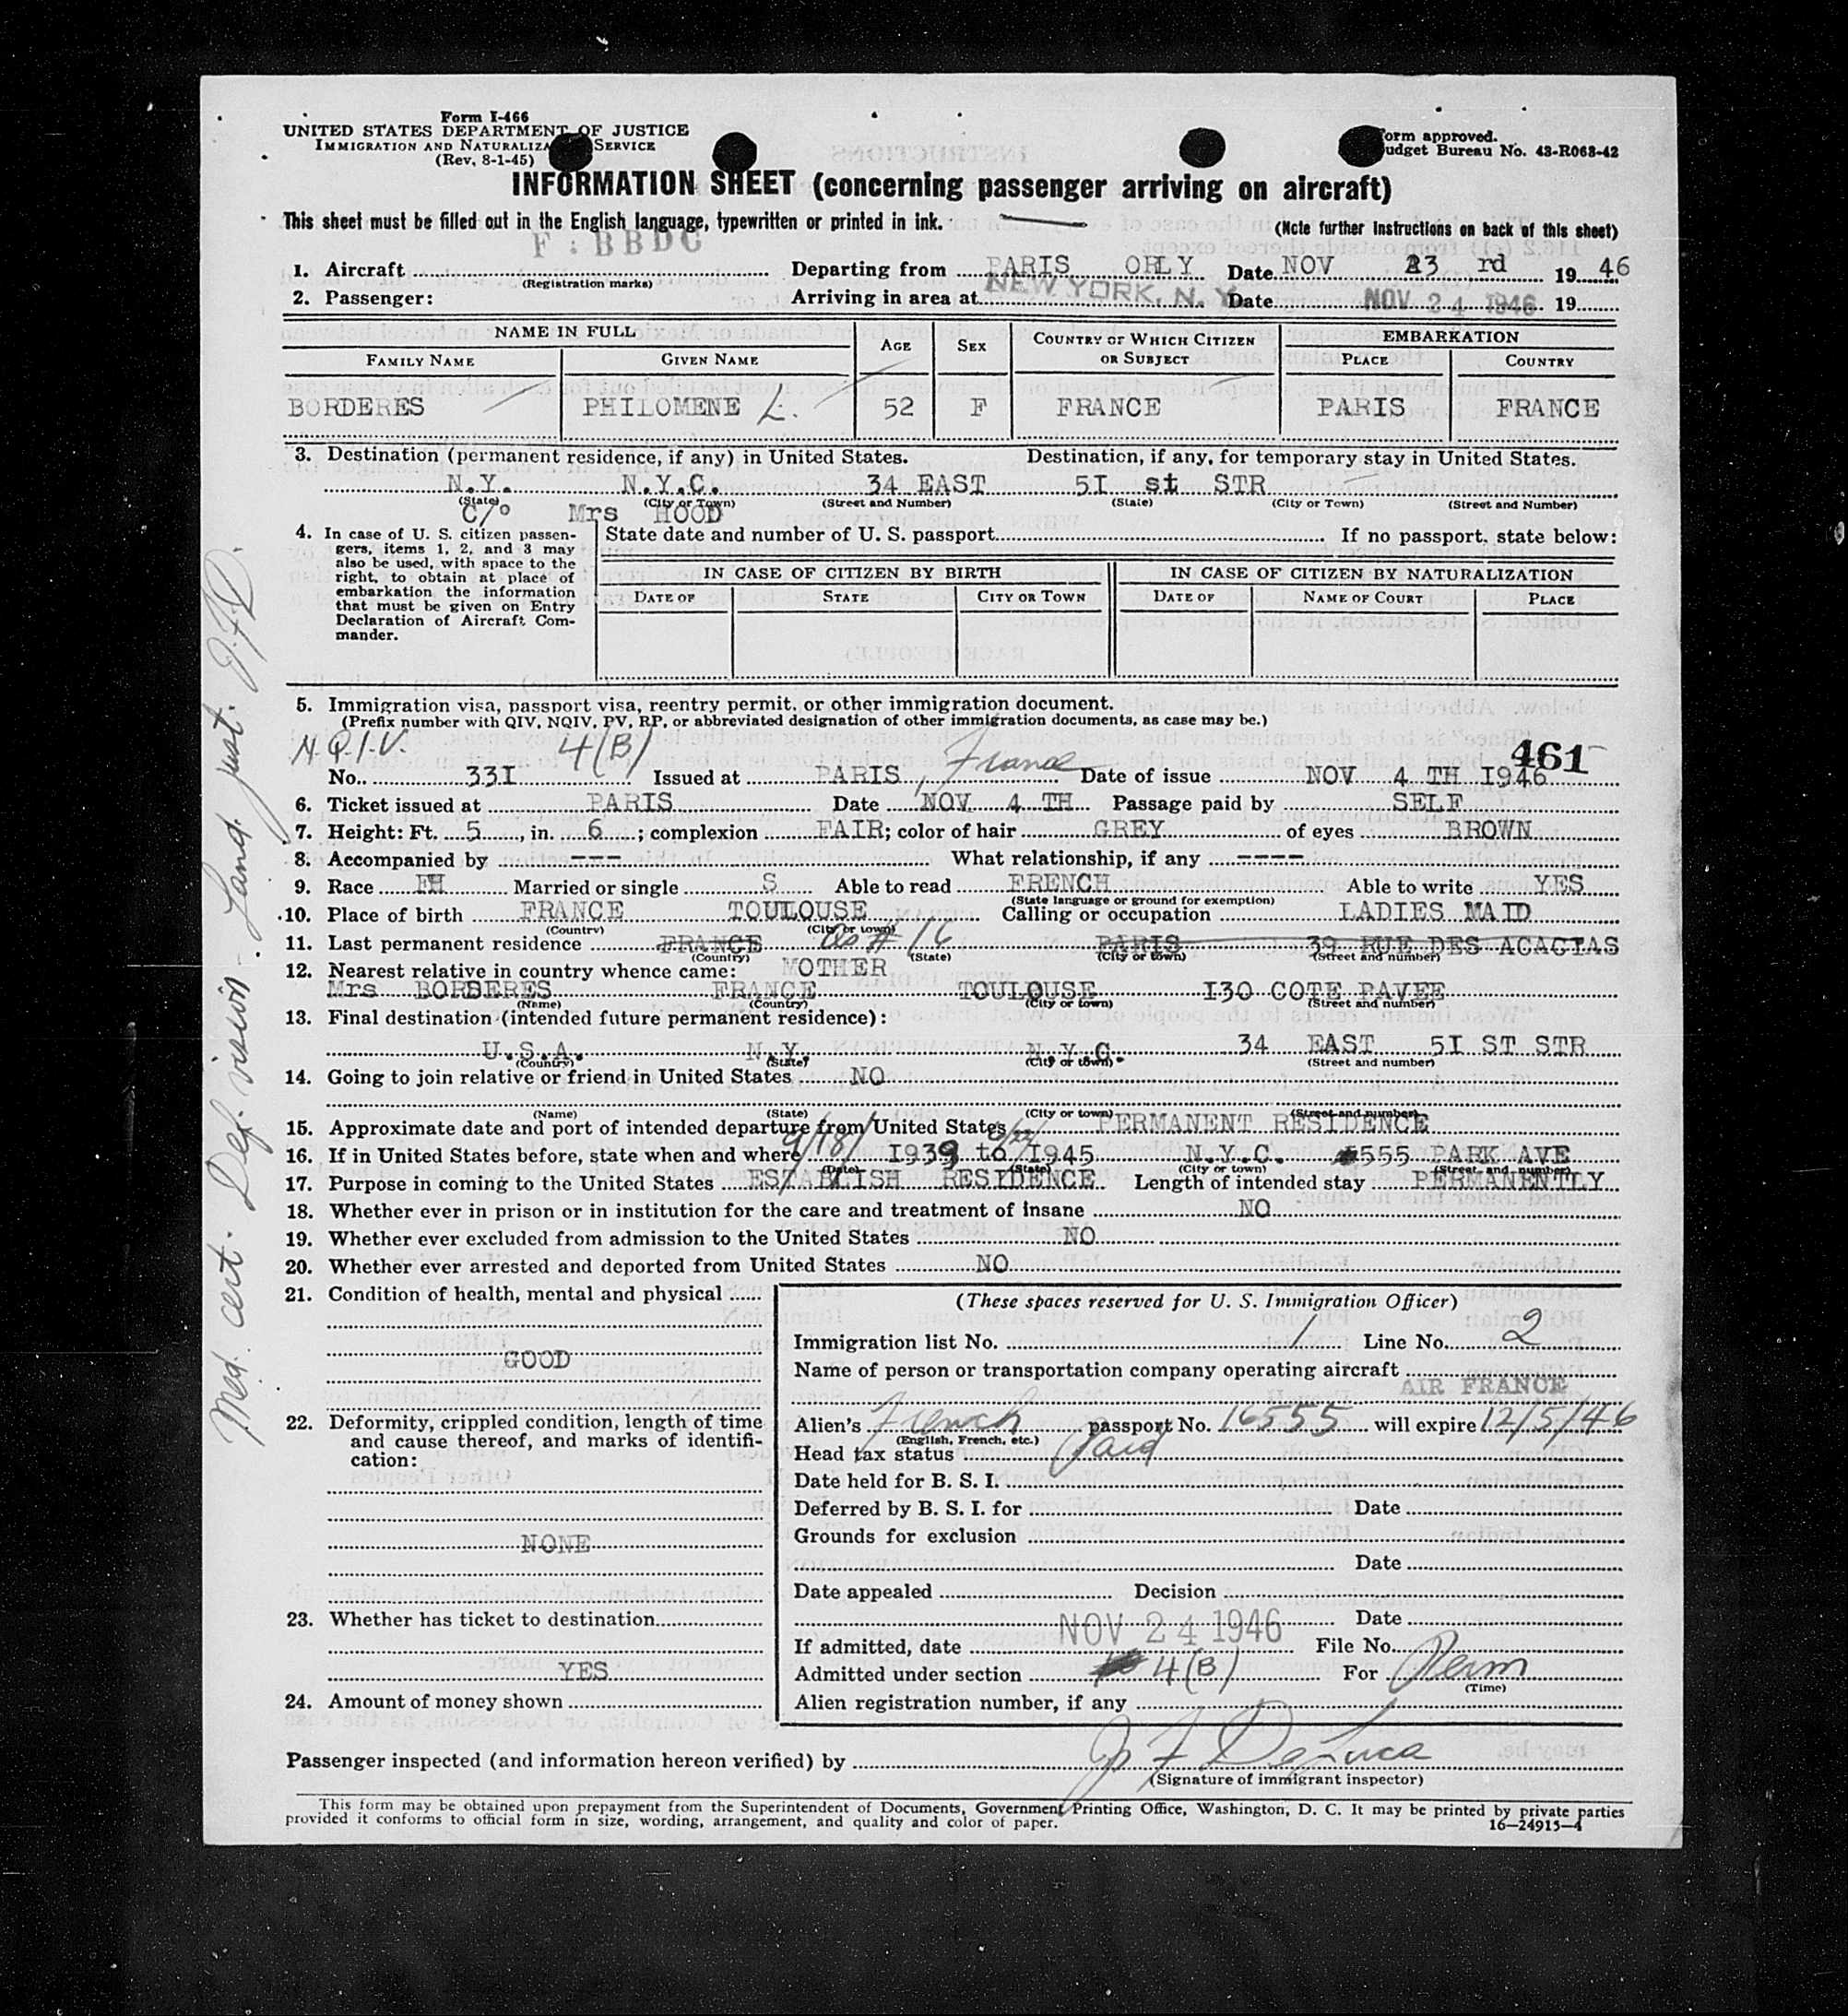 Form I-466
UNITED STATES DEPARTMENT OF JUSTICE
IMMIGRATION AND NATURALIZA SERVICE
(Rev. 8-1-45)
orm approved.
udget Bureau No. 43-R063-42
INFORMATION SHEET (concerning passenger arriving on aircraft)
This sheet must be filled out in the English language, typewritten or printed in ink. (Note further instructions on back of this sheet)
F : BBDC
1. Aircraft Departing from PARIS ORLY Date NOV 23 rd 1946
(Registration marks)
2. Passenger: Arriving in area at NEW YORK, N. Y. Date NOV 24 1946 19
NAME IN FULL AGE SEX COUNTRY OF WHICH CITIZEN OR SUBJECT EMBARKATION
FAMILY NAME GIVEN NAME PLACE COUNTRY
BORDERES PHILOMENE L. 52 F FRANCE PARIS FRANCE
3. Destination (permanent residence, if any) in United States. Destination, if any, for temporary stay in United States.
N.Y. N.Y.C. 34 EAST 5I st STR
(State) (City or Town) (Street and Number) (State) (City or Town) (Street and Number)
C/o Mrs HOOD
4. In case of U. S. citizen passengers, items 1, 2, and 3 may also be used, with space to the right, to obtain at place of embarkation the information that must be given on Entry Declaration of Aircraft Commander.
State date and number of U. S. passport If no passport, state below:
IN CASE OF CITIZEN BY BIRTH IN CASE OF CITIZEN BY NATURALIZATION
DATE OF STATE CITY OR TOWN DATE OF NAME OF COURT PLACE
5. Immigration visa, passport visa, reentry permit, or other immigration document.
(Prefix number with QIV, NQIV, PV, RP, or abbreviated designation of other immigration documents, as case may be.)
N.Q.I.V. 4(B) 461
No. 33I Issued at PARIS, France Date of issue NOV 4 TH I946
6. Ticket issued at PARIS Date NOV 4 TH Passage paid by SELF
7. Height: Ft. 5, in. 6; complexion FAIR; color of hair GREY of eyes BROWN
8. Accompanied by --- What relationship, if any ----
9. Race FH Married or single S Able to read FRENCH Able to write YES
(State language or ground for exemption)
10. Place of birth FRANCE TOULOUSE Calling or occupation LADIES MAID
(Country) (City or town)
11. Last permanent residence FRANCE as # 16 PARIS 39 RUE DES ACACIAS
(Country) (State) (City or town) (Street and number)
12. Nearest relative in country whence came: MOTHER
Mrs BORDERES FRANCE TOULOUSE I30 COTE PAVEE
(Name) (Country) (City or town) (Street and number)
13. Final destination (intended future permanent residence):
U.S.A. N.Y. N.Y.C. 34 EAST 5I ST STR
(Country) (State) (City or town) (Street and number)
14. Going to join relative or friend in United States NO
(Name) (State) (City or town) (Street and number)
15. Approximate date and port of intended departure from United States PERMANENT RESIDENCE
16. If in United States before, state when and where 9/18/ I939 to 9/22/ I945 N.Y.C. 555 PARK AVE
(Date) (State) (City or town) (Street and number)
17. Purpose in coming to the United States ESTABLISH RESIDENCE Length of intended stay PERMANENTLY
18. Whether ever in prison or in institution for the care and treatment of insane NO
19. Whether ever excluded from admission to the United States NO
20. Whether ever arrested and deported from United States NO
21. Condition of health, mental and physical
GOOD
22. Deformity, crippled condition, length of time and cause thereof, and marks of identification:
NONE
23. Whether has ticket to destination
YES
24. Amount of money shown
(These spaces reserved for U. S. Immigration Officer)
Immigration list No. 1 Line No. 2
Name of person or transportation company operating aircraft
AIR FRANCE
Alien's French passport No. 16555 will expire 12/5/46
(English, French, etc.)
Head tax status Paid
Date held for B. S. I.
Deferred by B. S. I. for Date
Grounds for exclusion
Date
Date appealed Decision
Date
If admitted, date NOV 24 1946 File No.
Admitted under section 4(B) For Perm
(Time)
Alien registration number, if any
Passenger inspected (and information hereon verified) by J F DeLuca
(Signature of immigrant inspector)
This form may be obtained upon prepayment from the Superintendent of Documents, Government Printing Office, Washington, D. C. It may be printed by private parties
provided it conforms to official form in size, wording, arrangement, and quality and color of paper. 16—24915-4
Med. cert. Def. vision - Land. just. J.F.D.